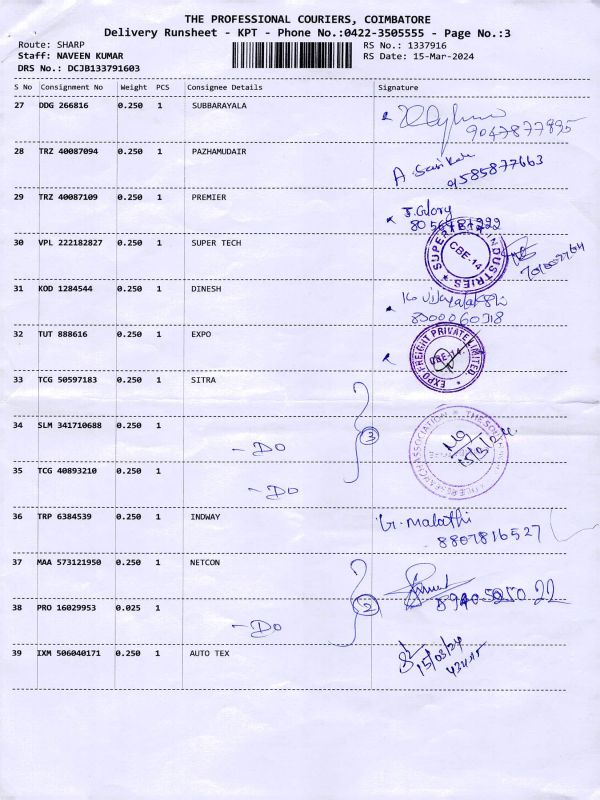 THE PROFESSIONAL COURIERS, COIMBATORE
Delivery Runsheet - KPT - Phone No.:0422-3505555 - Page No.:3
Route: SHARP RS No.: 1337916
Staff: NAVEEN KUMAR RS Date: 15-Mar-2024
DRS No.: DCJB133791603
S No Consignment No Weight PCS Consignee Details Signature
27 DDG 266816 0.250 1 SUBBARAYALA
9047877895
28 TRZ 40087094 0.250 1 PAZHAMUDAIR
A. Sasikala
9585877663
29 TRZ 40087109 0.250 1 PREMIER
J. Glory
8056481222
30 VPL 222182827 0.250 1 SUPER TECH
SUPER TECH INDUSTRIES
CBE-14
31 KOD 1284544 0.250 1 DINESH
8300060318
32 TUT 888616 0.250 1 EXPO
EXPO FREIGHT PRIVATE LIMITED
CBE-14
33 TCG 50597183 0.250 1 SITRA
34 SLM 341710688 0.250 1
- Do
3
35 TCG 40893210 0.250 1
- Do
36 TRP 6384539 0.250 1 INDWAY
G. Malathi
8807816527
37 MAA 573121950 0.250 1 NETCON
38 PRO 16029953 0.025 1
- Do
2
39 IXM 506040171 0.250 1 AUTO TEX
15/03/24